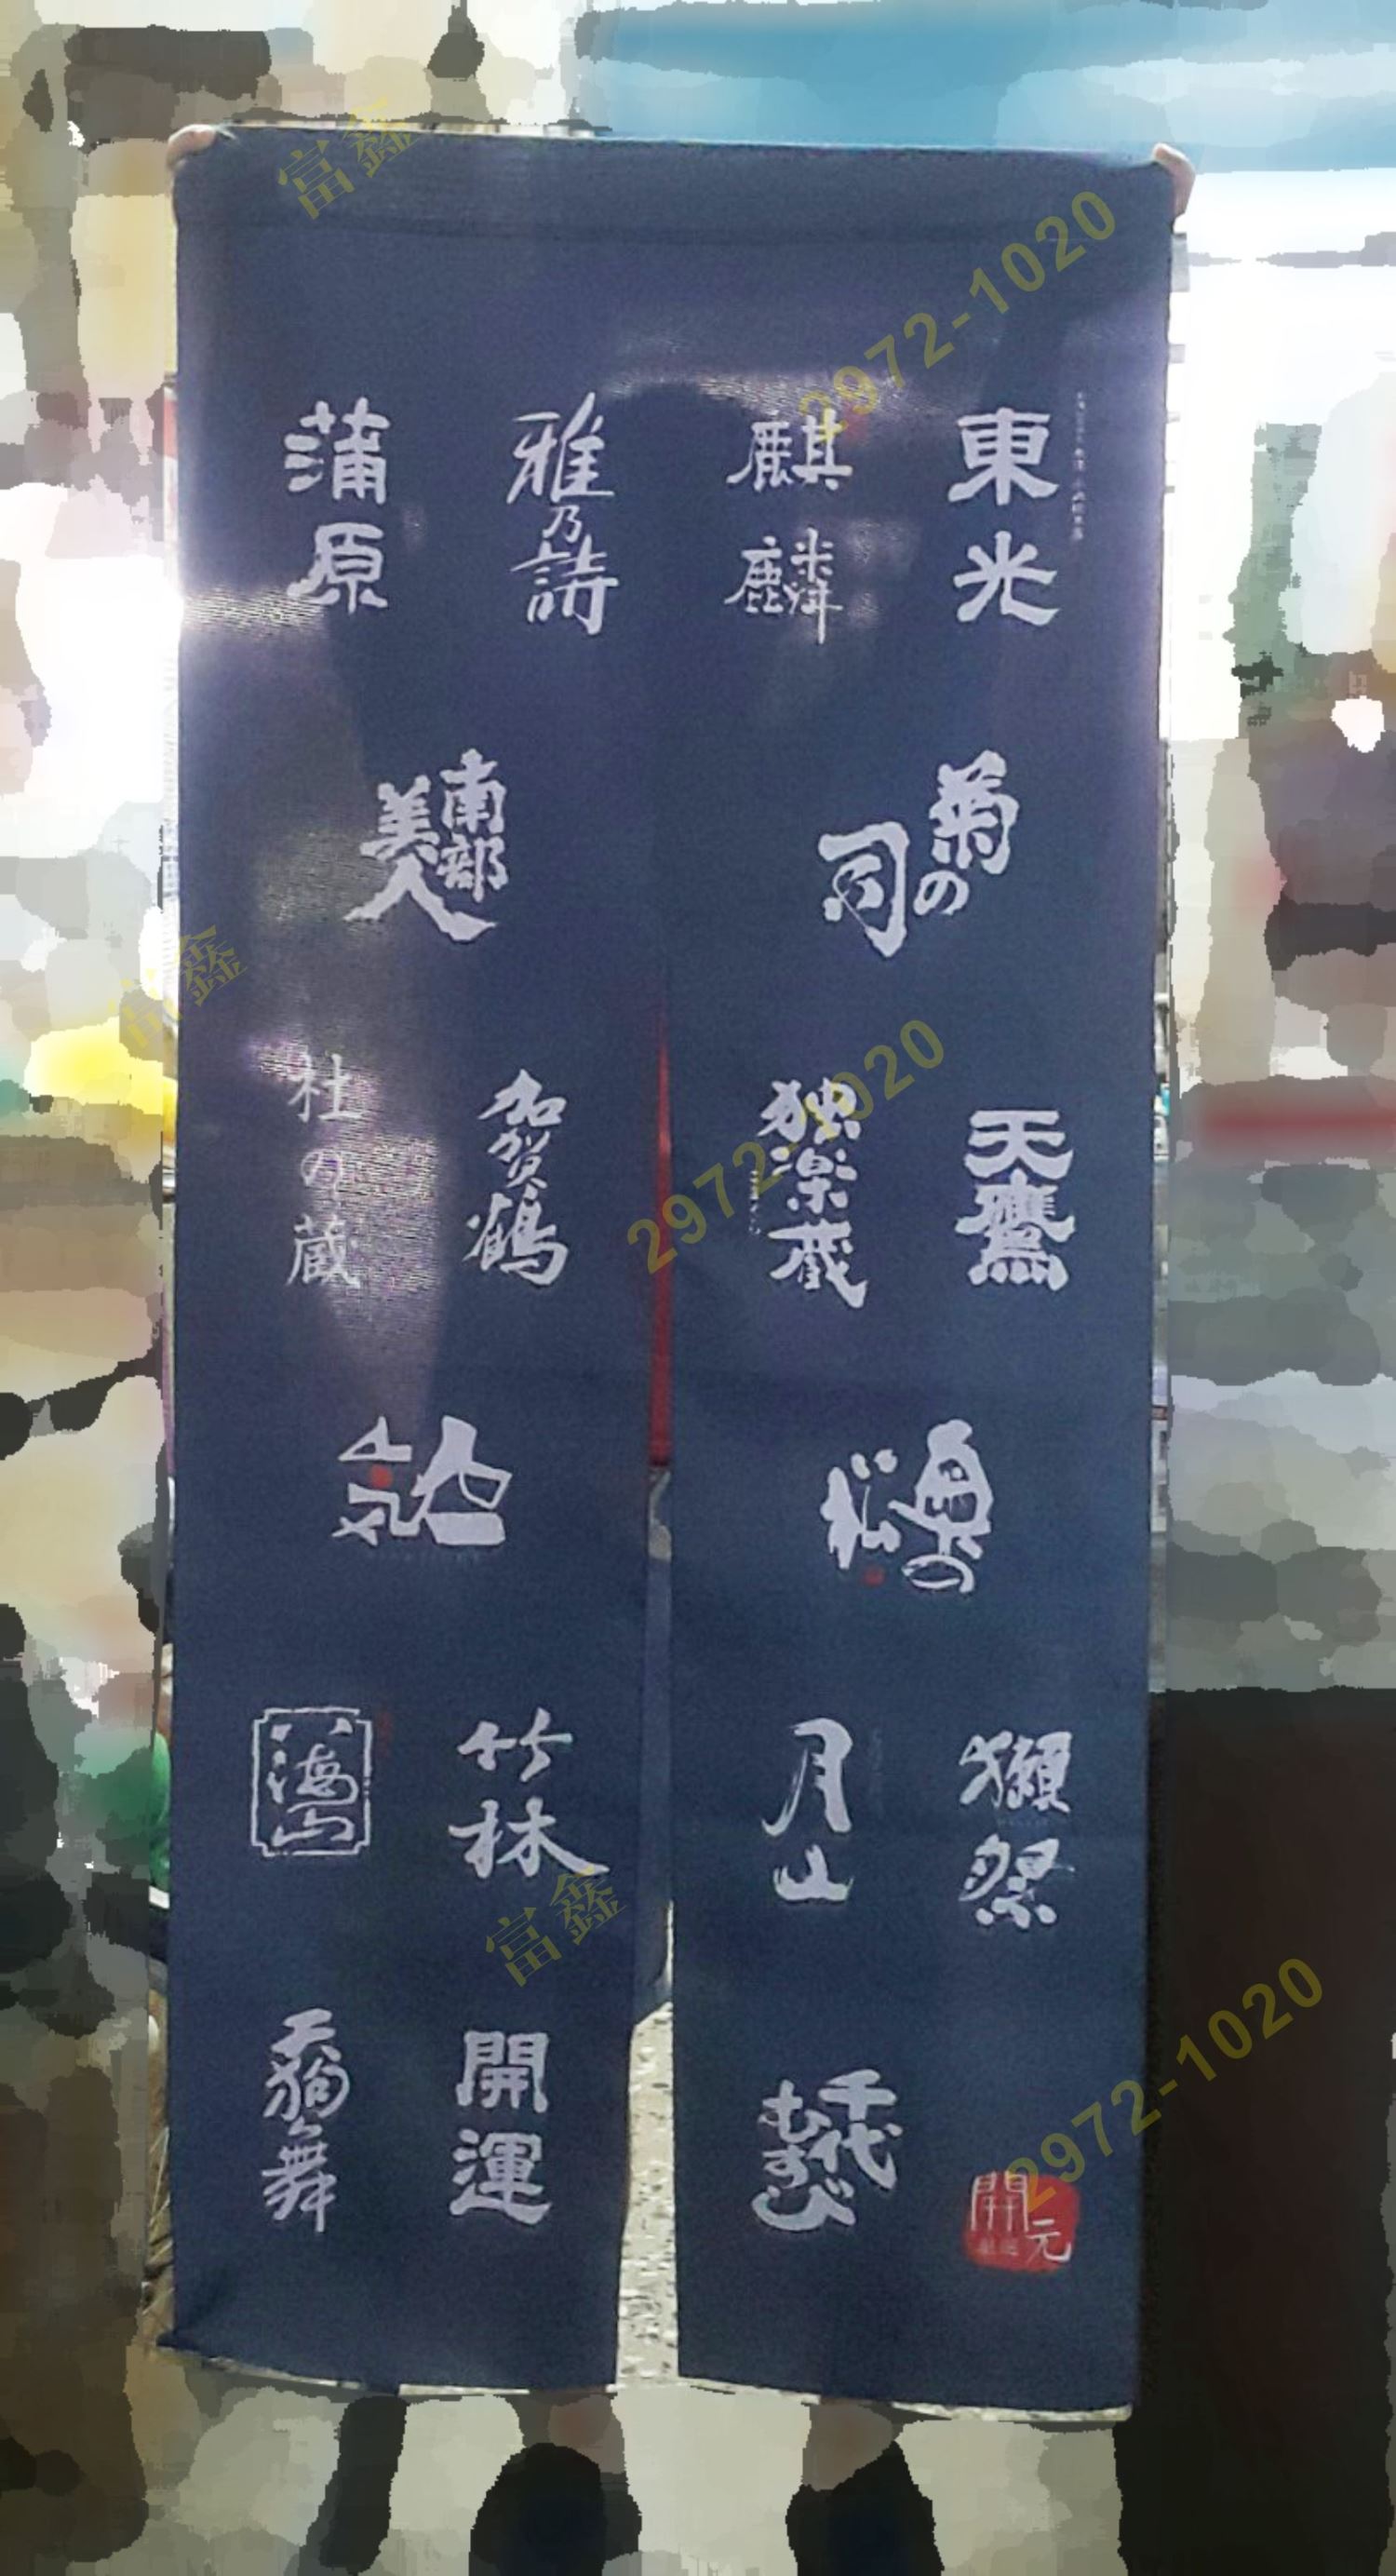 東光
麒麟
雅乃詩
蒲原
菊の司
南部美人
天鷹
独楽蔵
加賀鶴
杜の蔵
奥の松
獺祭
月山
竹林
八海山
千代むすび
開運
天狗舞
開元
富鑫
2972-1020
富鑫
2972-1020
富鑫
2972-1020